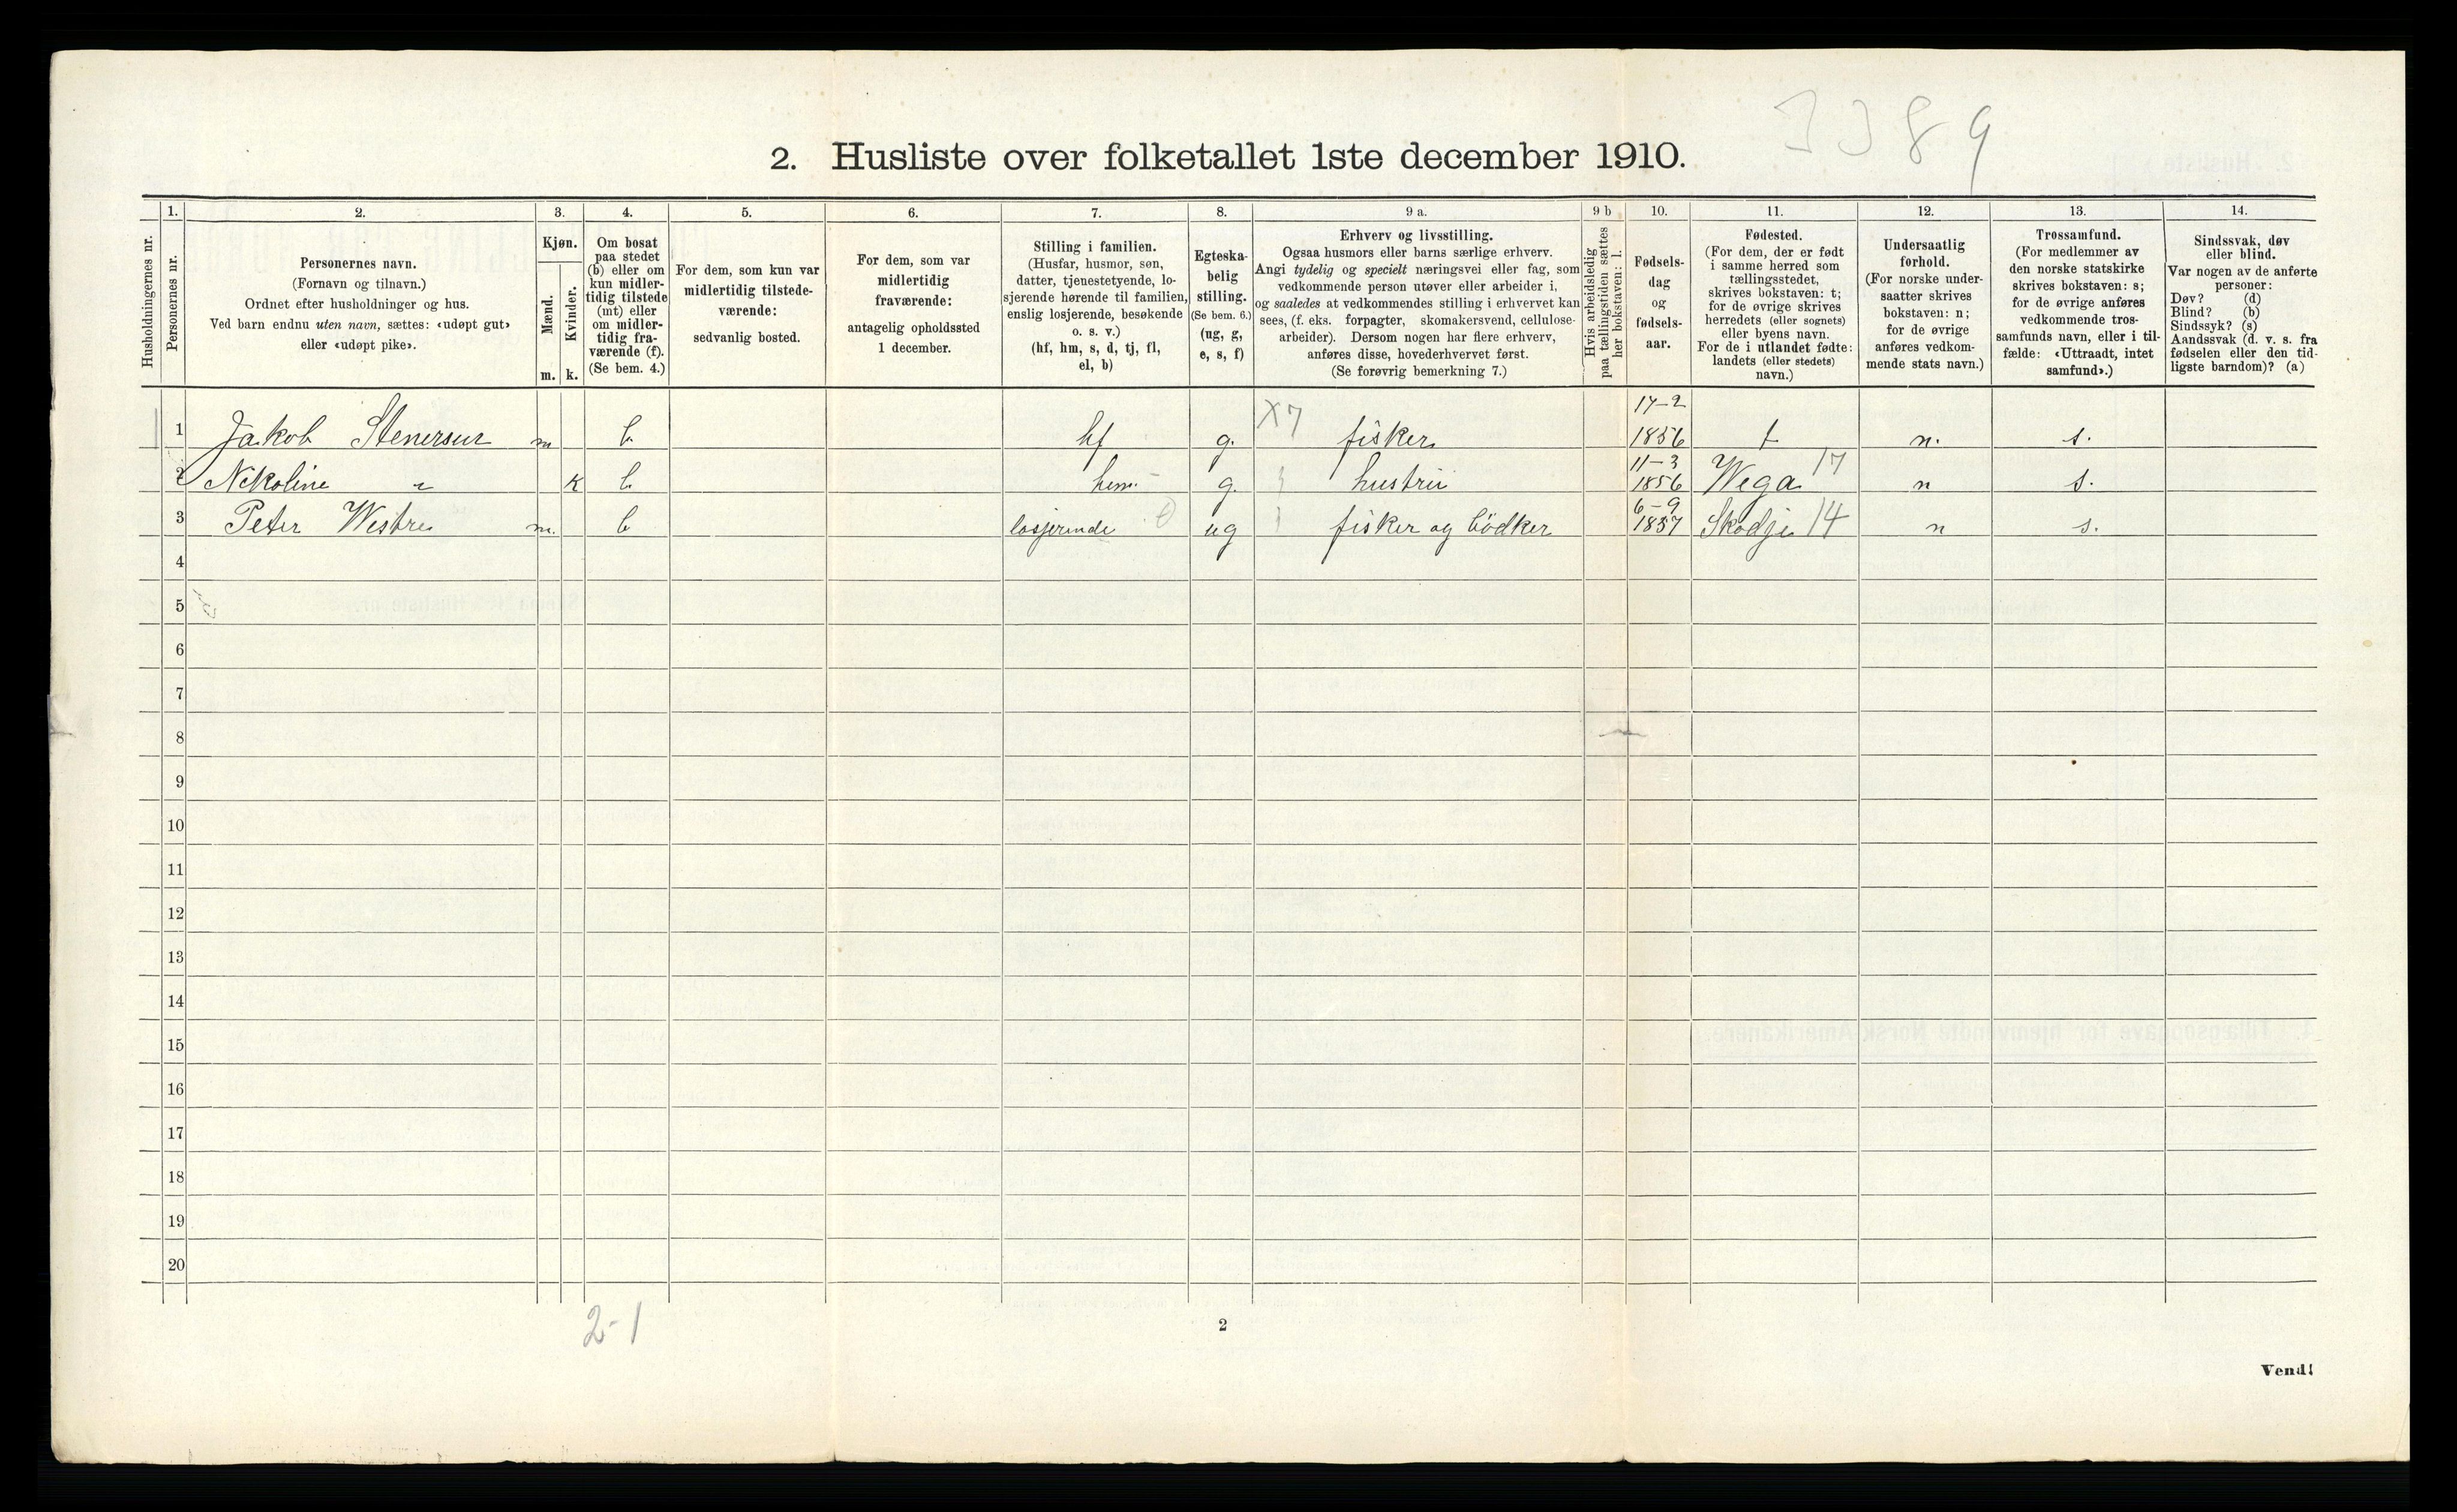 3389
2. Husliste over folketallet 1ste december 1910.
Husholdningernes nr.
1.
Personernes nr.
2.
Personernes navn.
(Fornavn og tilnavn.)
Ordnet efter husholdninger og hus.
Ved barn endnu uten navn, sættes: «udøpt gut»
eller «udøpt pike».
3.
Kjøn.
Mænd.
Kvinder.
m. k.
4.
Om bosat
paa stedet
(b) eller om
kun midler-
tidig tilstede
(mt) eller
om midler-
tidig fra-
værende (f).
(Se bem. 4.)
5.
For dem, som kun var
midlertidig tilstede-
værende:
sedvanlig bosted.
6.
For dem, som var
midlertidig
fraværende:
antagelig opholdssted
1 december.
7.
Stilling i familien.
(Husfar, husmor, søn,
datter, tjenestetyende, lo-
sjerende hørende til familien,
enslig losjerende, besøkende
o. s. v.)
(hf, hm, s, d, tj, fl,
el, b)
8.
Egteska-
belig
stilling.
(Se bem. 6.)
(ug, g,
e, s, f)
9 a.
Erhverv og livsstilling.
Ogsaa husmors eller barns særlige erhverv.
Angi tydelig og specielt næringsvei eller fag, som
vedkommende person utøver eller arbeider i,
og saaledes at vedkommendes stilling i erhvervet kan
sees, (f. eks. forpagter, skomakersvend, cellulose-
arbeider). Dersom nogen har flere erhverv,
anføres disse, hovederhvervet først.
(Se forøvrig bemerkning 7.)
9 b
Hvis arbeidsledig
paa tællingstiden sættes
her bokstaven: l.
10.
Fødsels-
dag
og
fødsels-
aar.
11.
Fødested.
(For dem, der er født
i samme herred som
tællingsstedet,
skrives bokstaven: t;
for de øvrige skrives
herredets (eller sognets)
eller byens navn.
For de i utlandet fødte:
landets (eller stedets)
navn.)
12.
Undersaatlig
forhold.
(For norske under-
saatter skrives
bokstaven: n;
for de øvrige
anføres vedkom-
mende stats navn.)
13.
Trossamfund.
(For medlemmer av
den norske statskirke
skrives bokstaven: s;
for de øvrige anføres
vedkommende tros-
samfunds navn, eller i til-
fælde: «Uttraadt, intet
samfund».)
14.
Sindssvak, døv
eller blind.
Var nogen av de anførte
personer:
Døv? (d)
Blind? (b)
Sindssyk? (s)
Aandssvak (d. v. s. fra
fødselen eller den tid-
ligste barndom)? (a)
1 Jakob Stenersen m b hf g. X7 fisker 17-2 1856 t n. s.
2 Nikoline " k b hm. g. hustru 11-3 1856 Wega 17 n s.
3 Peter Westre m. b losjerende ug fisker og bödker 6-9 1837 Skodje 14 n s.
4
5
6
7
8
9
10
11
12
13
14
15
16
17
18
19
20
2-1
2
Vend!